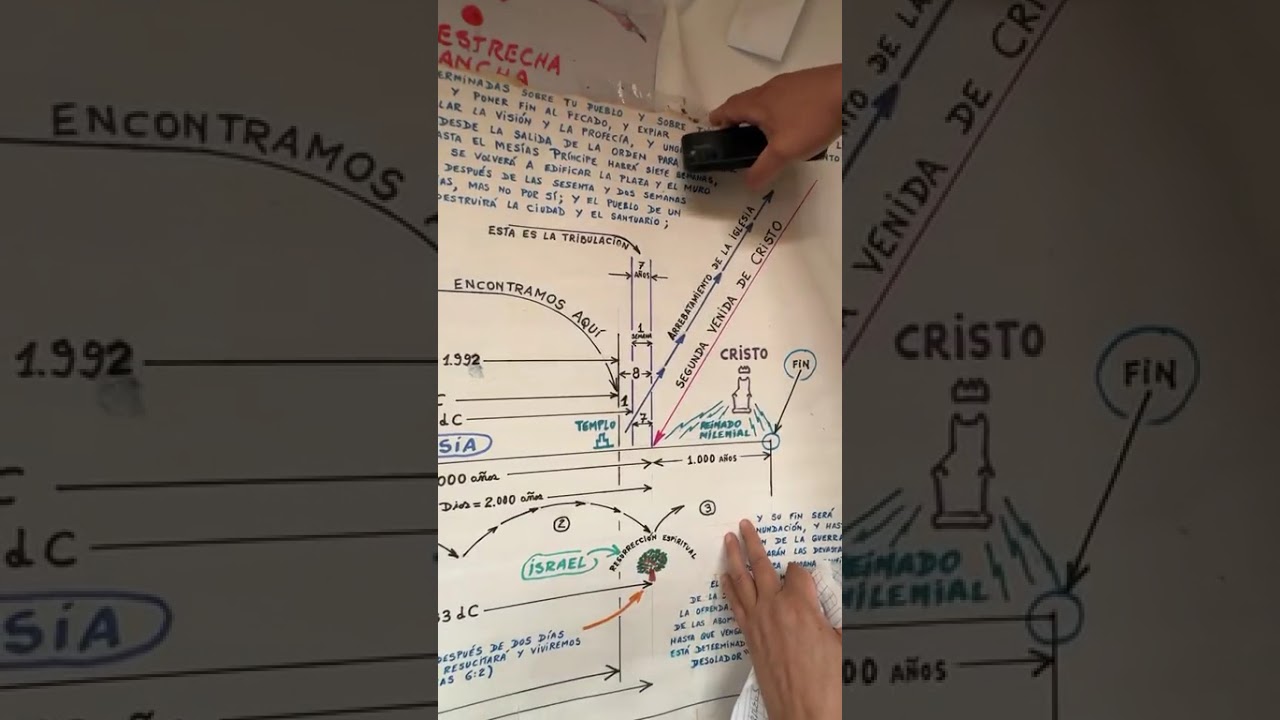 ESTRECHA
ANCHA
ERMINADAS SOBRE TU PUEBLO Y SOBRE
Y PONER FIN AL PECADO, Y EXPIAR
LAR LA VISIÓN Y LA PROFECÍA, Y UNGI
DESDE LA SALIDA DE LA ORDEN PARA
ASTA EL MESÍAS PRÍNCIPE HABRÁ SIETE SEMANAS,
SE VOLVERÁ A EDIFICAR LA PLAZA Y EL MURO
DESPUÉS DE LAS SESENTA Y DOS SEMANAS
AS, MAS NO POR SÍ; Y EL PUEBLO DE UN
ESTRUIRÁ LA CIUDAD Y EL SANTUARIO;
ESTA ES LA TRIBULACION
7
AÑOS
ENCONTRAMOS AQUÍ
ARREBATAMIENTO DE LA IGLESIA
SEGUNDA VENIDA DE CRISTO
1
SEMANA
1.992
8
CRISTO
FIN
C
1
d C
7
TEMPLO
REINADO
MILENIAL
SIA
1.000 AÑOS
000 años
Dios = 2.000 años
2
3
RESURRECCION ESPIRITUAL
ISRAEL
33 dC
DESPUÉS DE DOS DÍAS
RESUCITARÁ Y VIVIREMOS
AS 6:2)
Y SU FIN SERÁ
NUNDACIÓN, Y HAS
N DE LA GUERRA
ARÁN LAS DEVAS
EL
DE LA
LA OFRENDA
DE LAS ABOM
HASTA QUE VENG
ESTÁ DETERMINAD
DESOLADOR"
ENCONTRAMOS
1.992
C
d C
SIA
DE LA
VENIDA DE CR
CRISTO
FIN
REINADO
MILENIAL
00 AÑOS